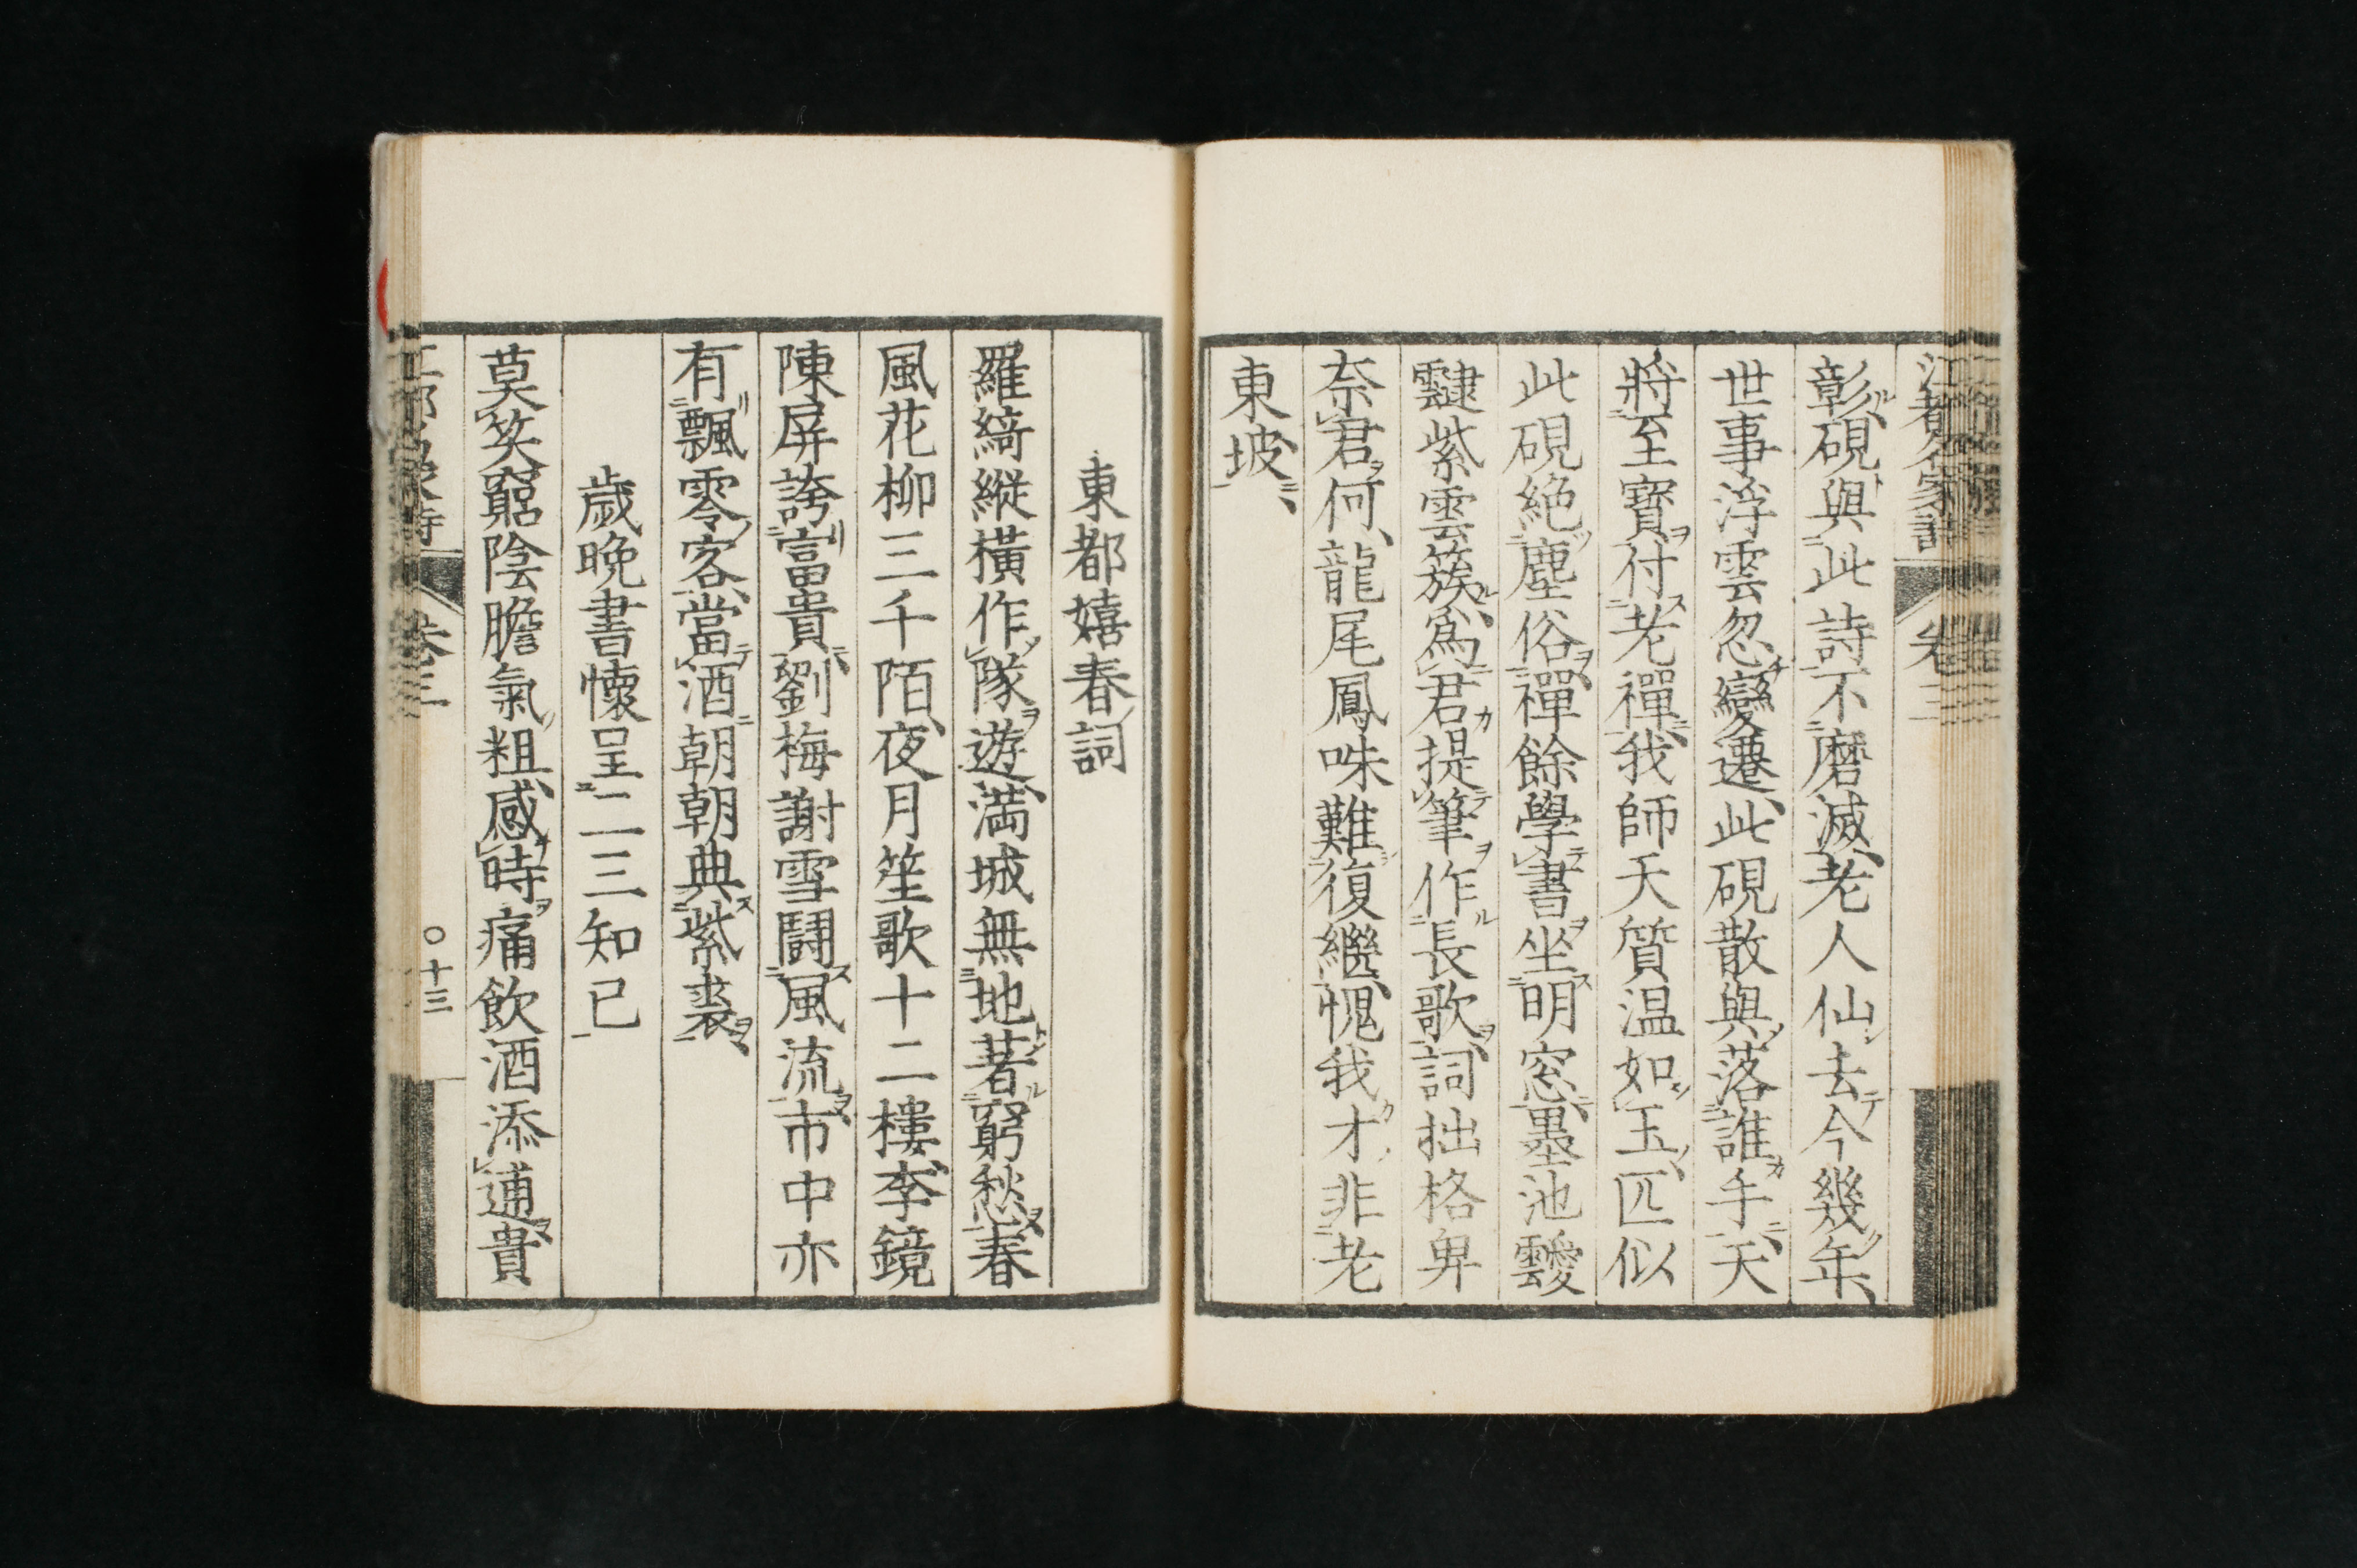 江都名家詩 卷三
彰硯與此詩不磨滅老人仙去今幾年
世事浮雲忽變遷此硯散與落誰手天
將至寶付老禪我師天質温如玉匹似
此硯絶塵俗禪餘學書坐明窓墨池靉
靆紫雲簇爲君提筆作長歌詞拙格卑
奈君何龍尾鳳咮難復繼愧我才非老
東坡
東都嬉春詞
羅綺縱横作隊遊満城無地著窮愁春
風花柳三千陌夜月笙歌十二樓李鏡
陳屏誇富貴劉梅謝雪鬪風流市中亦
有飄零客當酒朝朝典紫裘
歳晩書懷呈二三知己
莫笑窮陰膽氣粗感時痛飲酒添逋貴
卷三 〇十三